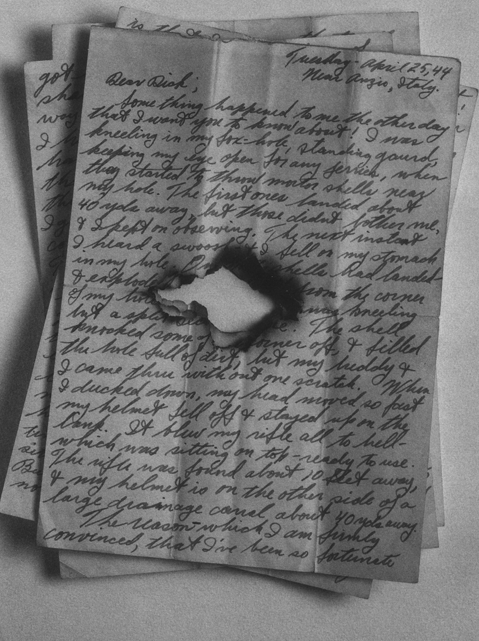 Tuesday - April 25, 44
Near Anzio, Italy.
Dear Dick;
Something happened to me the other day
that I want you to know about! I was
kneeling in my fox-hole, standing guard,
keeping my eye open for any Jerries, when
they started to throw mortar shells near
my hole. The first ones landed about
40 yds away, but those didn't bother me,
& I kept on observing. The next instant
I heard a swoosh & I fell on my stomach
in my hole. shells had landed
& explode from the corner
of my hole was kneeling
but a split The shell
knocked some of corner off, & filled
the hole full of dirt, but my buddy &
I came thru without one scratch. When
I ducked down, my head moved so fast
my helmet fell off & stayed up on the
bank. It blew my rifle all to hell-
which was sitting on top-ready to use.
The rifle was found about 10 feet away,
& my helmet is on the other side of a
large drainage canal about 40 yds away.
The reason which I am firmly
convinced, that I've been so fortunate